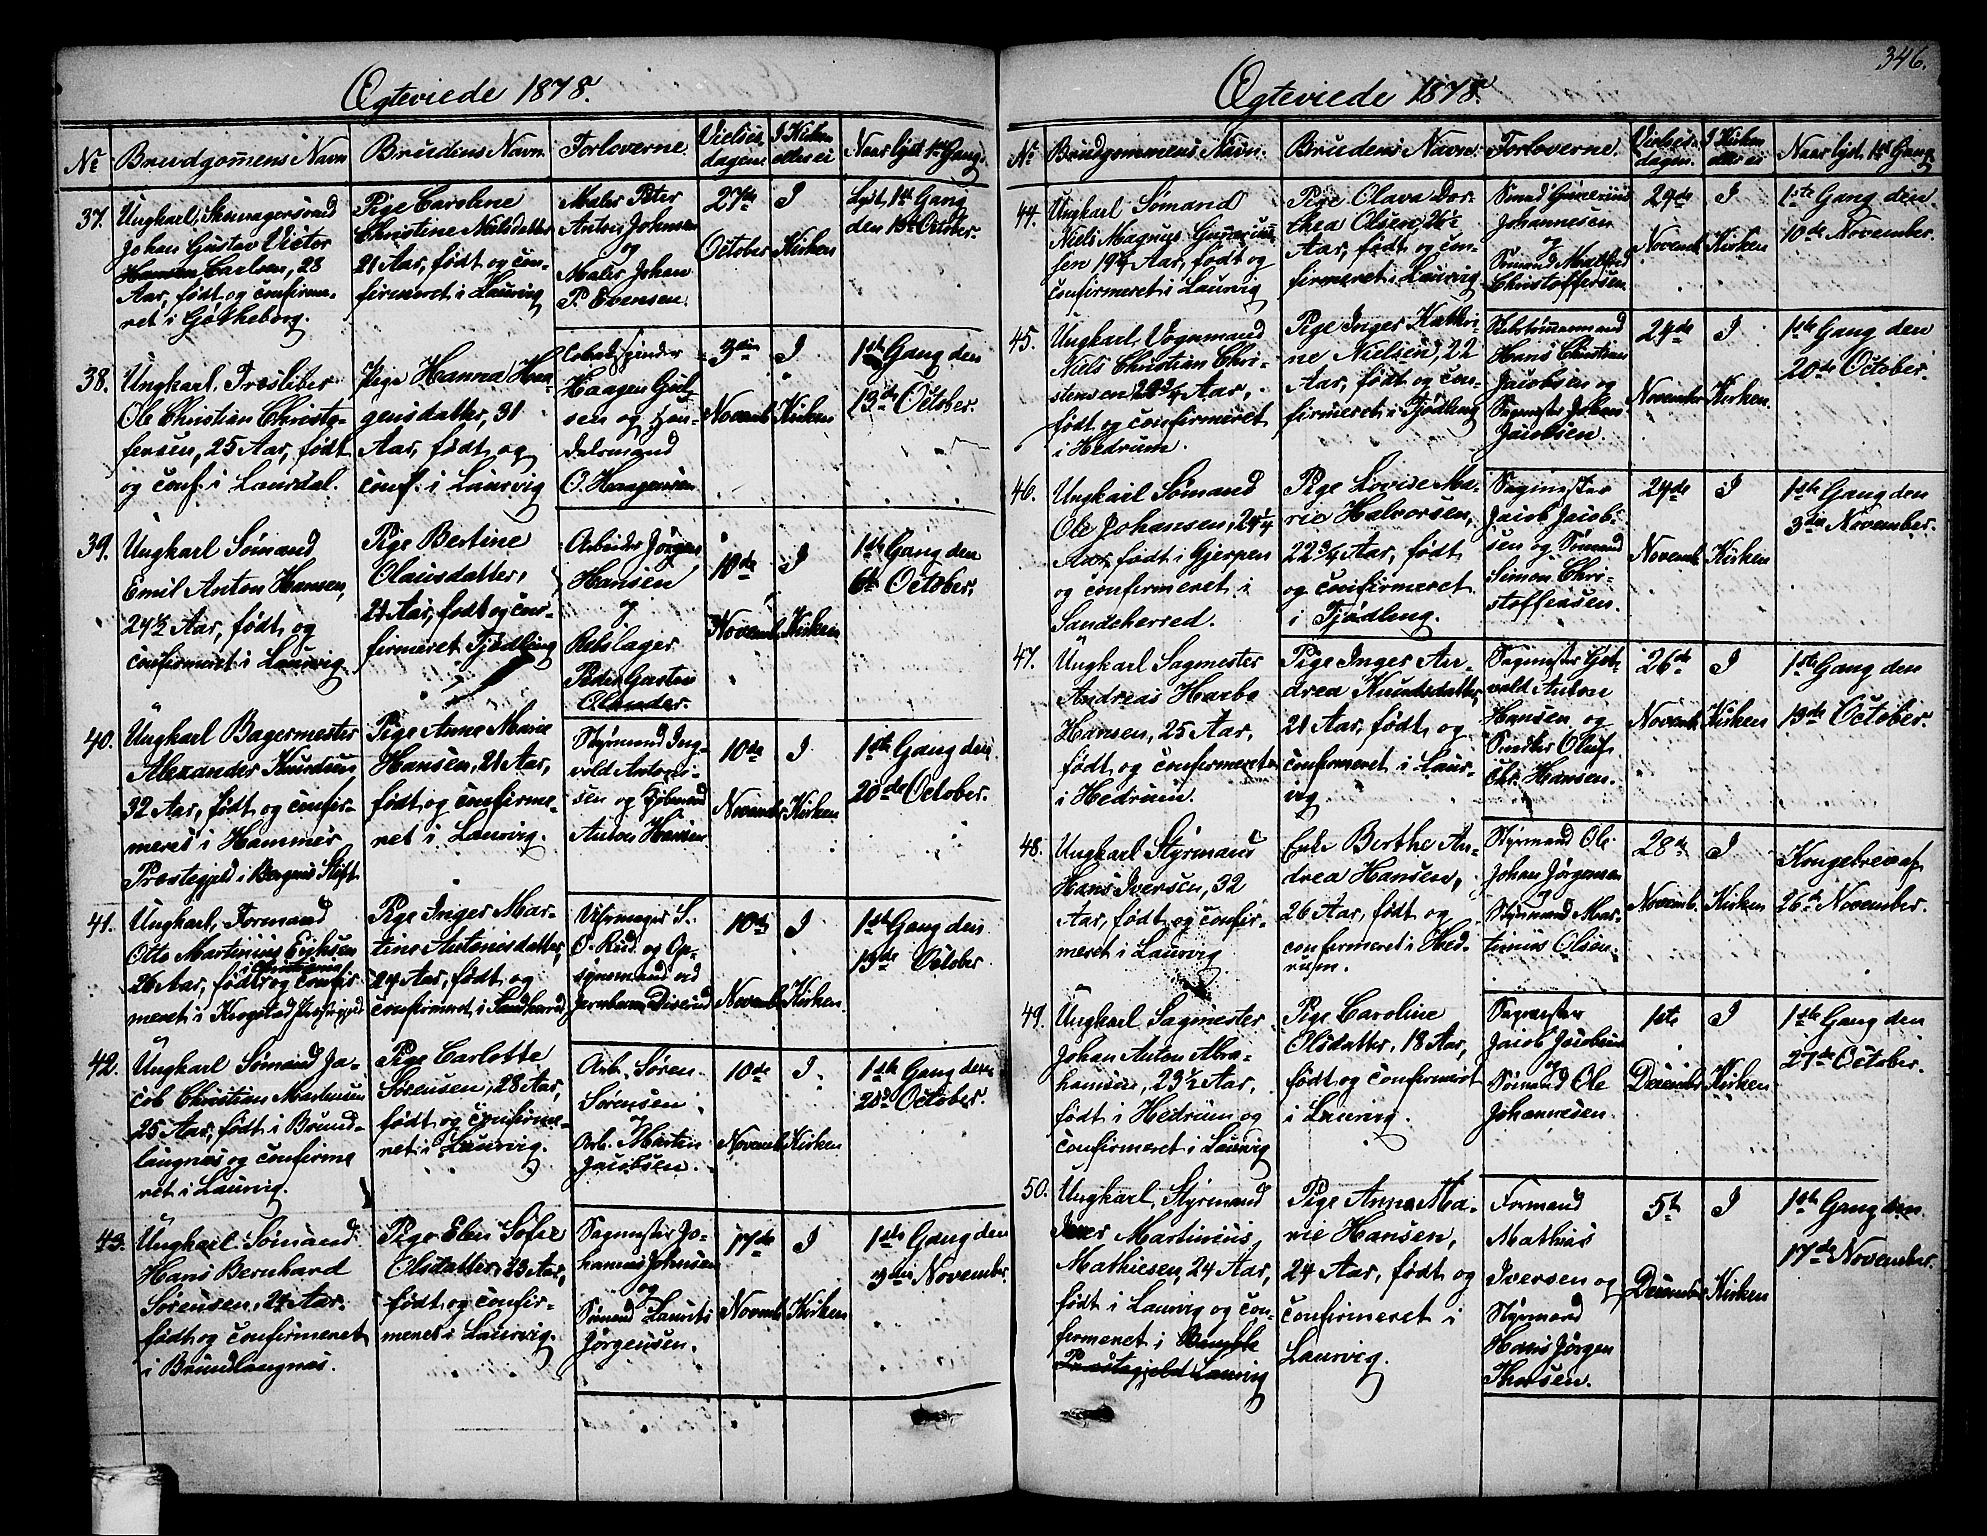 Ægteviede 1878.
No
Brudgomens Navn
Brudens Navn
Forloverne.
Vielses-
dagen
I Kirken
eller ei
Naar lyst 1ste Gang
37.
Ungkarl,
Johan Gustav Victor
Carlsen, 28
Aar, født og confirme-
ret i Gøtheborg.
Pige Caroline
Christine Nielsdatter
21 Aar, født og con-
firmeret i Laurvig
Maler Peter
Anton Johnsen
og
Maler Johan
P. Evensen.
27de
October
I
Kirken
Lyst 1ste Gang
den 13de October.
38.
Ungkarl,
Ole Christian Christo-
fersen, 25 Aar, født
og conf. i Laurdal.
Pige Hanna Haa-
gensdatter, 31
Aar, født og
conf. i Laurvig
Haagen
sen og Han-
delsmand
O. Haagensen
3die
Novemb.
I
Kirken
1ste Gang den
13de October.
39.
Ungkarl Sømand
Emil Anton Hansen,
24½ Aar, født og
confirmeret i Laurvig
Pige Bertine
Olausdatter,
21 Aar, født og con-
firmeret Tjødling
Arbeider Jørgen
Hansen
og
Rebslager
Peder Gusten
Olander.
10de
Novemb.
I
Kirken
1ste Gang den
6te October.
40.
Ungkarl Bagermester
Alexander Knudsen,
32 Aar, født og confir-
meret i Hammer
Præstegjeld i Bergens Stift
Pige Anne Marie
Hansen, 21 Aar,
født og confirme-
ret i Laurvig.
Styrmand Ing-
vold Antoni-
sen og
Anton Hansen
10de
Novemb.
I
Kirken
1ste Gang den
20de October.
41.
Ungkarl, Formand
Otto Martinius Eriksen
i Christiania
26 Aar, født og confir-
meret i Krogstad Præstegjeld
Pige Inger Mar-
tine Antonisdatter,
24 Aar, født og
confirmeret i Sandherred
S.
O. Rud og Op-
synsmand ved
Jernbanen
10de
Novemb.
I
Kirken
1ste Gang den
13de October
42.
Ungkarl Sømand Ja-
cob Christian Martinsen
25 Aar, født i Brund-
langnæs og confirme
ret i Laurvig.
Pige Carlotte
Sørensen, 28 Aar,
født og confirme-
ret i Laurvig.
Arb. Søren
Sørensen
Arb. Martin
Jacobsen.
10de
Novemb.
I
Kirken
1ste Gang den
20de October.
43.
Ungkarl Sømand
Hans Bernhard
Sørensen, 24 Aar.
født og confirmeret
i Brundlangnæs.
Pige Elen Sofie
Olsdatter, 23 Aar,
født og confir-
meret i Laurvig.
Sagmester Jo-
hannes Johnsen
og
Sømand Laurits
Jørgensen.
17de
Novemb.
I
Kirken
1ste Gang den
3die November.
346.
Ægteviede 1878.
No
Brudgommens Navn.
Brudens Navn.
Forloverne.
Vielses-
dagen.
I Kirken
eller ei
Naar lyst 1ste Gang
44.
Ungkarl Sømand
Niels Magnus Gunerius-
sen 19¼ Aar, født og
confirmeret i Laurvig
Pige Olava Dor-
thea Olsen, 26½
Aar, født og con-
firmeret i Laurvig
Sømand Gunerius
Johannesen
og
Sømand Mathias
Christoffersen
24de
Novemb.
I
Kirken
1ste Gang den
10de November.
45.
Ungkarl Vognmand
Niels Christian Chri-
stensen, 20¾ Aar,
født og confirmeret
i Hedrum.
Pige Inger Kathri-
ne Nielsen, 22
Aar, født og con-
firmeret i Tjødling
Hans Christian
Jacobsen og
Sagmester Johan
Jacobsen.
24de
November
I
Kirken.
1ste Gang den
20de October.
46.
Ungkarl Sømand
Ole Johansen, 24¼
Aar, født i Gjerpen
og confirmeret i
Sandeherred.
Pige Lovise Ma-
rie Halvorsen,
22¾ Aar, født
og confirmeret
i Tjødling.
Sagmester
Jacob Jacob-
sen og Sømand
Simon Chri-
stoffersen.
24de
Novemb.
I
Kirken
1ste Gang den
3die November.
47.
Ungkarl Sagmester
Andreas Harbo
Hansen, 25 Aar,
født og confirmeret
i Hedrum.
Pige Inger An-
drea Knudsdatter,
21 Aar, født og
confirmeret i Laur-
vig.
Sagmester Got-
vald Anton
Hansen og
Smeder Oluf
Chr. Hansen.
26de
Novemb.
I
Kirken
1ste Gang den
13de October.
48.
Ungkarl Styrmand
Hans Iversen, 32
Aar, født og confir-
meret i Laurvig
Enke Berthe An-
drea Hansen,
26 Aar, født og
confirmeret i Hed-
rum.
Styrmand Ole
Johan Jørgensen
og
Styrmand Mar-
tinius Olsen.
28de
Novemb.
I
Kirken
Kongebrev af
26de November.
49.
Ungkarl Sagmester
Johan Anton Abra-
hamsen, 23½ Aar,
født i Hedrum og
confirmeret i Laurvig
Pige Caroline
Olsdatter, 18 Aar,
født og confirmeret
i Laurvig.
Sagmester
Jacob Jacobsen
og
Sømand Ole
Johannesen.
1ste
December
I
Kirken
1ste Gang den
27de October.
50.
Ungkarl Styrmand
Iver Martinius
Mathiesen, 24 Aar,
født i Laurvig og con-
firmeret i Bamble
Præstegjeld Laurvig
Pige Anna Ma-
rie Hansen,
24 Aar, født og
confirmeret i
Laurvig.
Formand
Mathias
Iversen og
Styrmand
Hans Jørgen
Thorsen.
5te
December
I
Kirken
1ste Gang den
17de November.